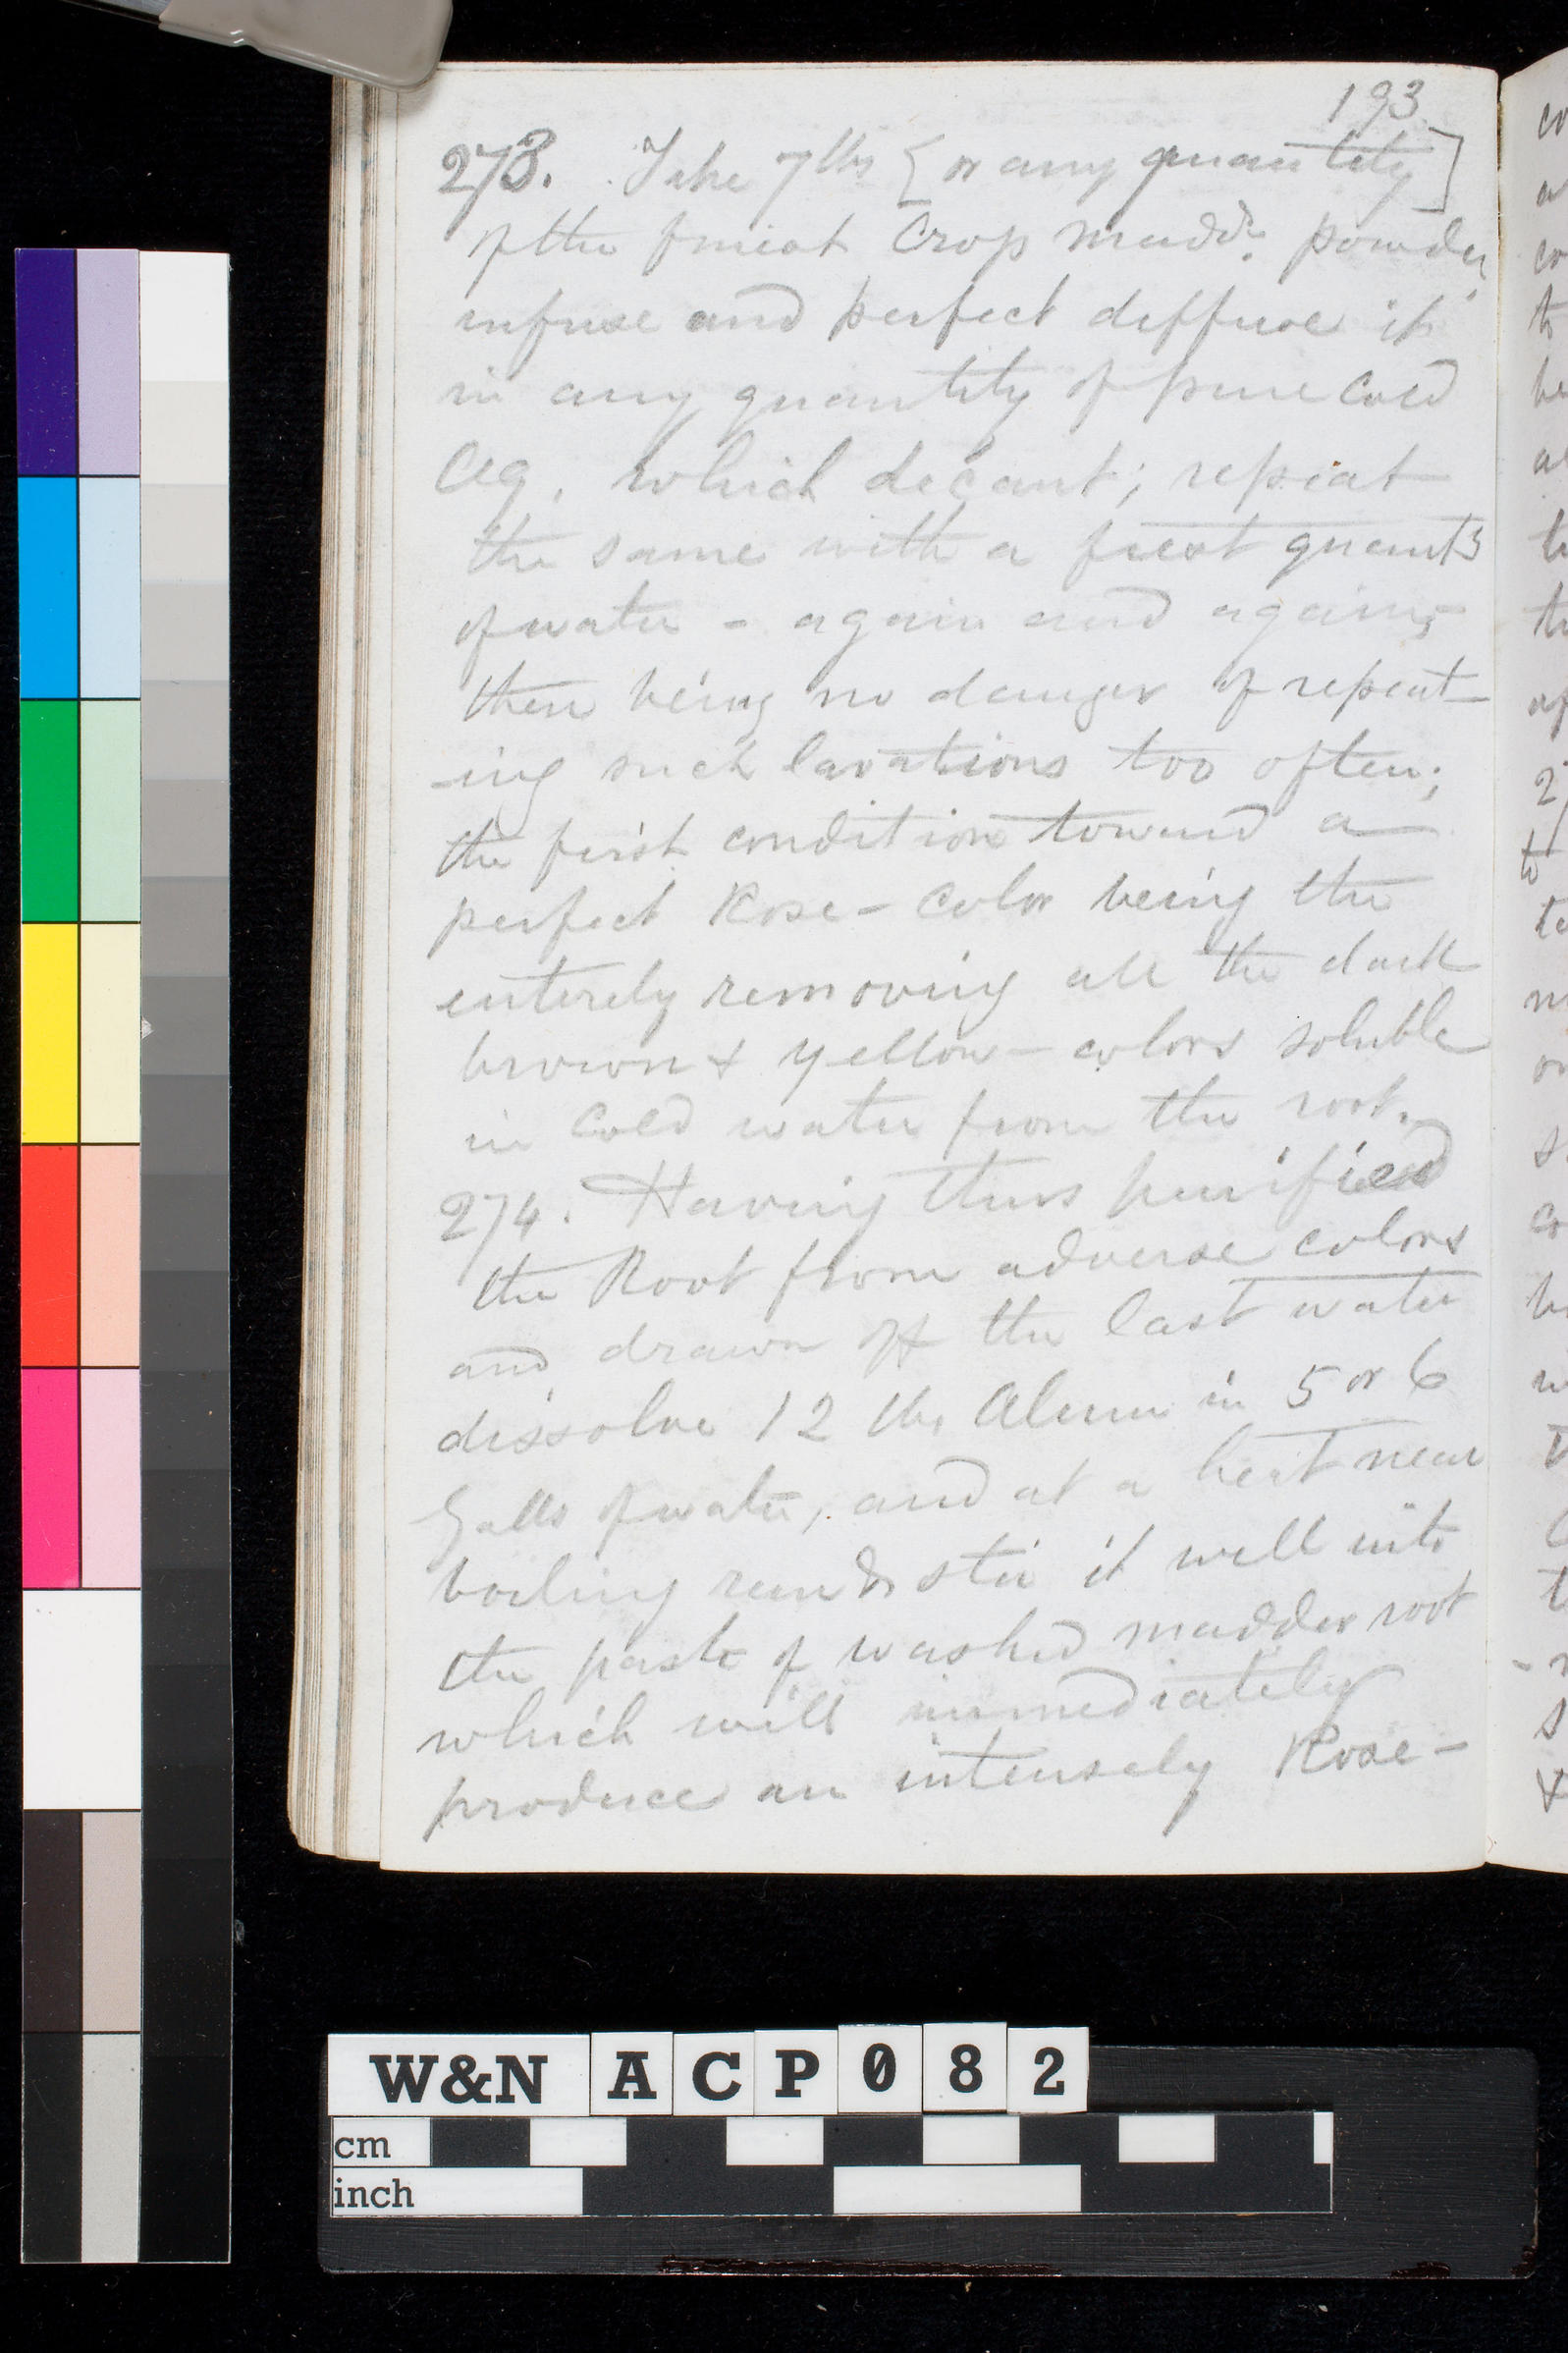 193
273. Take 7 lbs [or any quantity]
of the finest Crop madd.r powder,
infuse and perfect diffuse it
in any quantity of pure cold
Aq. which decant; repeat
the same with a fresh quanty
of water - again and again;
there being no danger of repeat-
-ing such lavations too often;
the first condition toward a
perfect Rose-Color being the
entirely removing all the dark
brown & yellow-colors soluble
in cold water from the root.
274. Having thus purified
the Root from adverse colors
and drawn off the last water
dissolve 12 lbs Alum in 5 or 6
Galls of water, and at a heat near
boiling run & stir it well into
the paste of washed madder root
which will immediately
produce an intensely Rose-
W&N ACP082
cm
inch